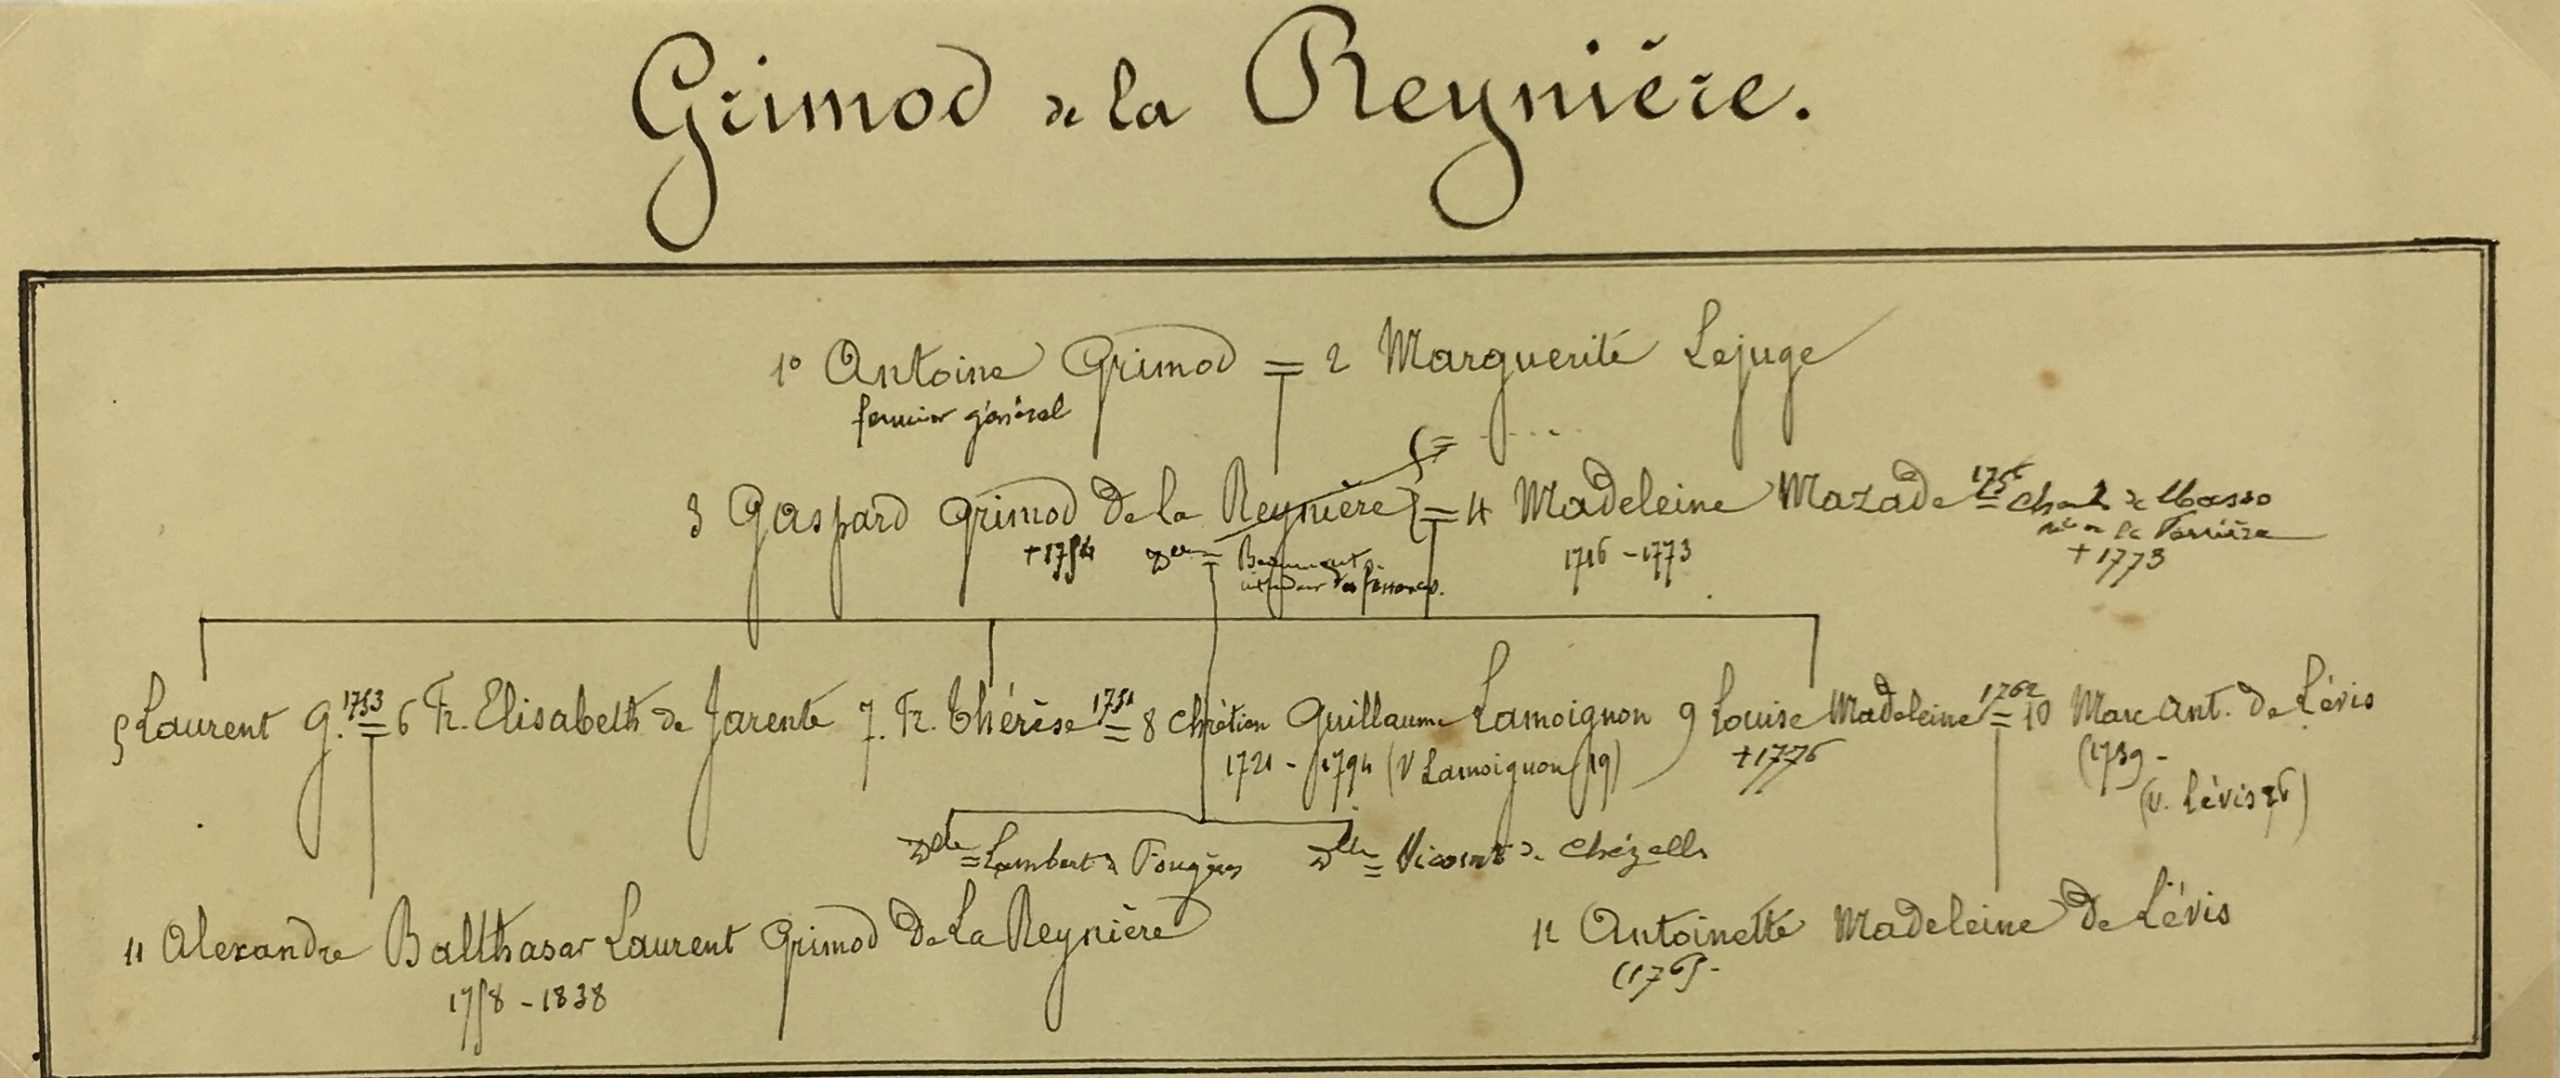 Grimod de la Reynière.
1° Antoine Grimod = 2 Marguerite Lejuge
fermier général
= ....
3 Gaspard Grimod de la Reynière = 4 Madeleine Mazade = Charles de Masso
+1754 Dlle = Beaumont 1716 - 1773 de la Ferrière
intendant des finances. +1773
5 Laurent G. 1753 = 6 Fr. Elisabeth de Jarente 7. Fr. Thérèse = 8 Chrétien Guillaume Lamoignon 9 Louise Madeleine 1762 = 10 Marc Ant. de Lévis
1721 - 1794 (V Lamoignon 19) +1776 (1739 -
(v. Lévis 26)
Dlle = Lambert de Fougères Dlle = Vicomte de Chézelles
11 Alexandre Balthasar Laurent Grimod de La Reynière 12 Antoinette Madeleine de Lévis
1758 - 1838 (1765 -